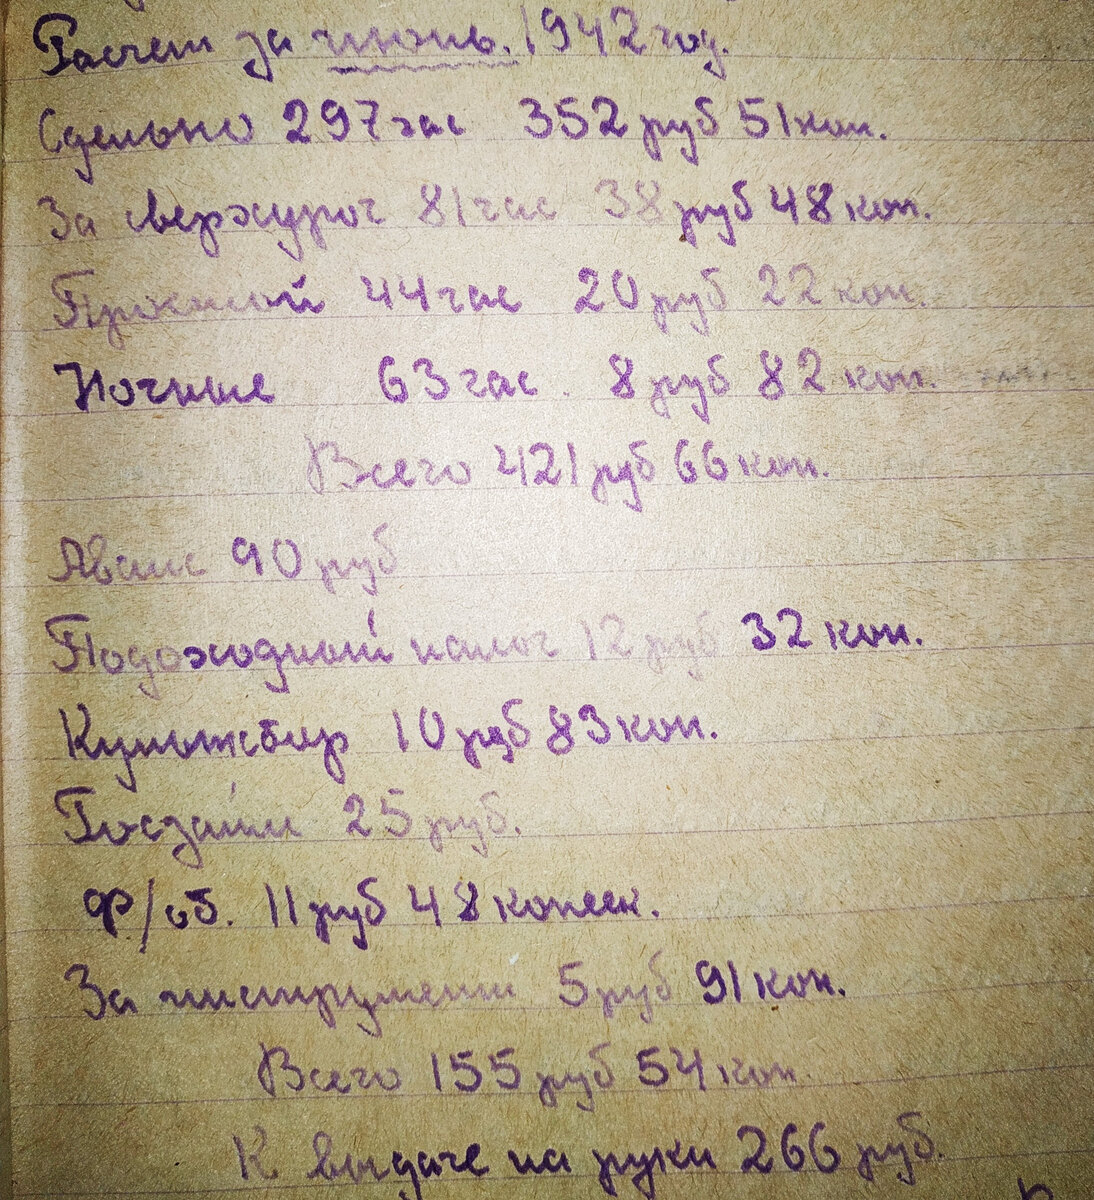 Расчет за июнь. 1942 год.
Сдельно 297 час 352 руб 51 коп.
За сверхуроч 81 час 38 руб 48 коп.
44 час 20 руб 22 коп.
Ночные 63 час. 8 руб 82 коп.
Всего 421 руб 66 коп.
Аванс 90 руб
Подоходный налог 12 руб 32 коп.
Культсбор 10 руб 83 коп.
Госзайм 25 руб.
Ф/об. 11 руб 48 копеек.
За инструмент 5 руб 91 коп.
Всего 155 руб 54 коп.
К выдаче на руки 266 руб.